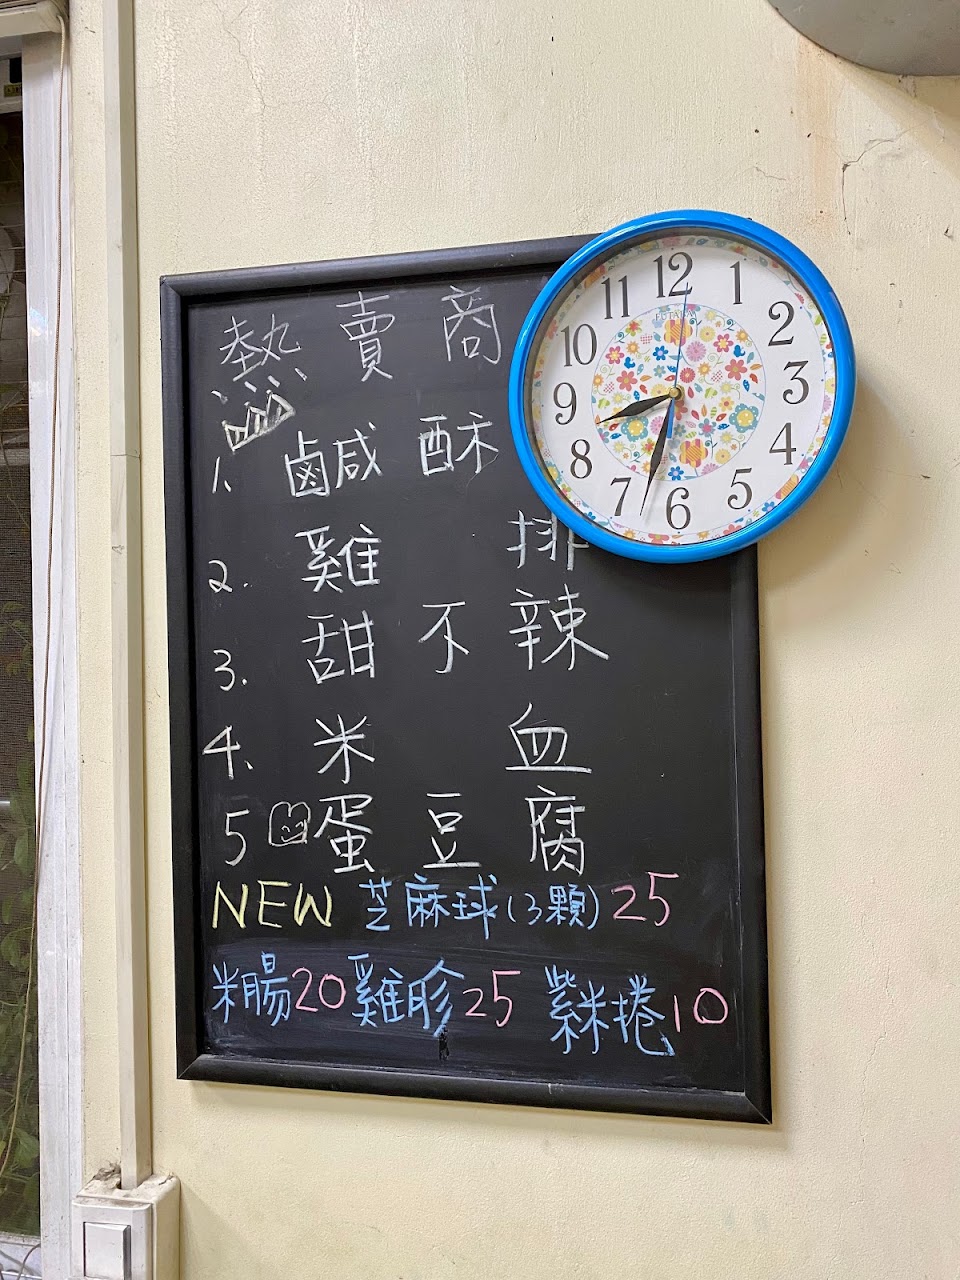 熱賣商
1. 鹹酥
2. 雞排
3. 甜不辣
4. 米血
5 蛋豆腐
NEW 芝麻球(3顆) 25
米腸20 雞胗25 紫米捲10
12 1 2 3 4 5 6 7 8 9 10 11